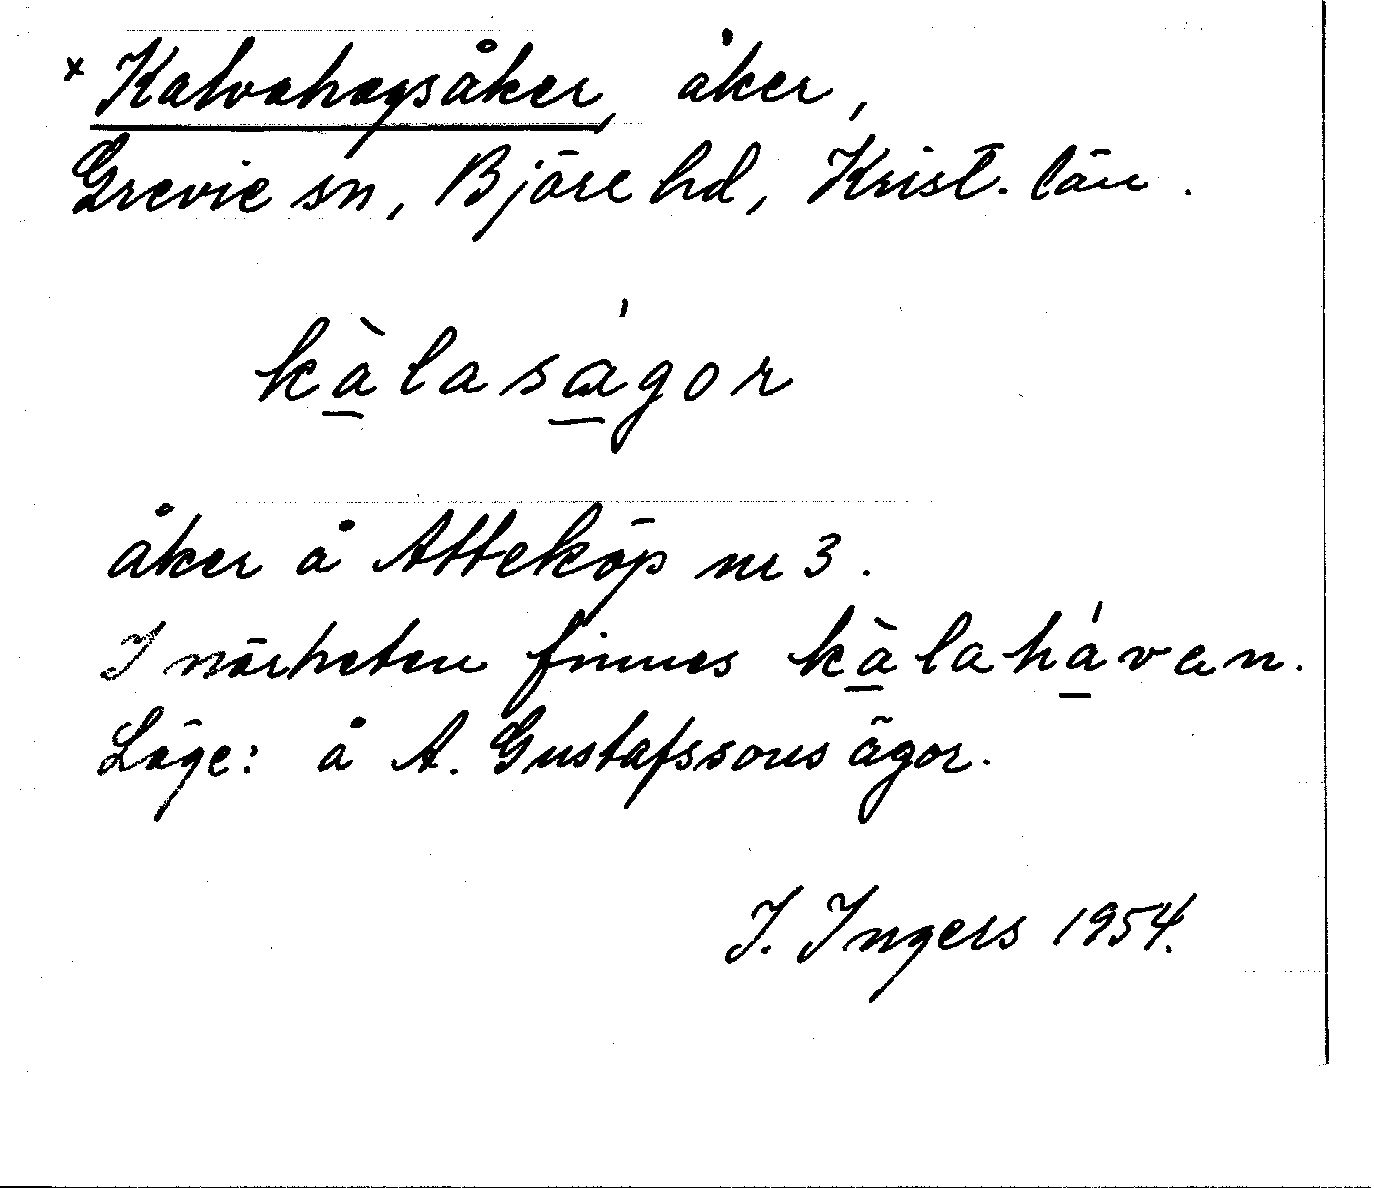 x Kalvahagsåker, åker,
Grevie sn, Bjäre hd, Krist. län.
kàlaságor
åker å Atteköp nr 3.
I närheten finnes kàlahávan.
Läge: å A. Gustafssons ägor.
I. Ingers 1954.